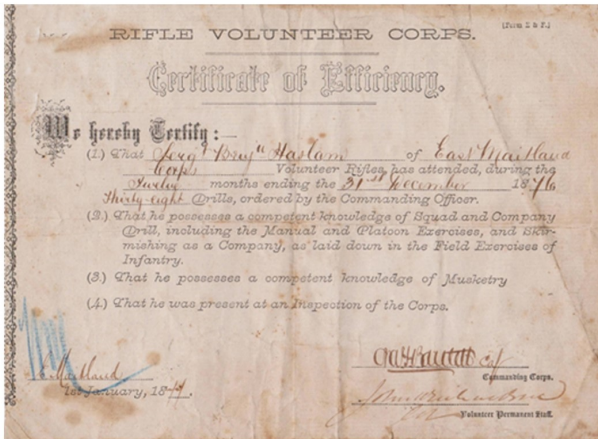 RIFLE VOLUNTEER CORPS.
Certificate of Efficiency.
We hereby Certify:—
(1.) That Sergt Benjn Haslam of East Maitland
Corps Volunteer Rifles, has attended, during the
Twelve months ending the 31st December 1876
Thirty-eight Drills, ordered by the Commanding Officer.
(2.) That he possesses a competent knowledge of Squad and Company
Drill, including the Manual and Platoon Exercises, and Skir-
mishing as a Company, as laid down in the Field Exercises of
Infantry.
(3.) That he possesses a competent knowledge of Musketry
(4.) That he was present at an Inspection of the Corps.
Commanding Corps.
E. Maitland
1st January, 1877.
Volunteer Permanent Staff.